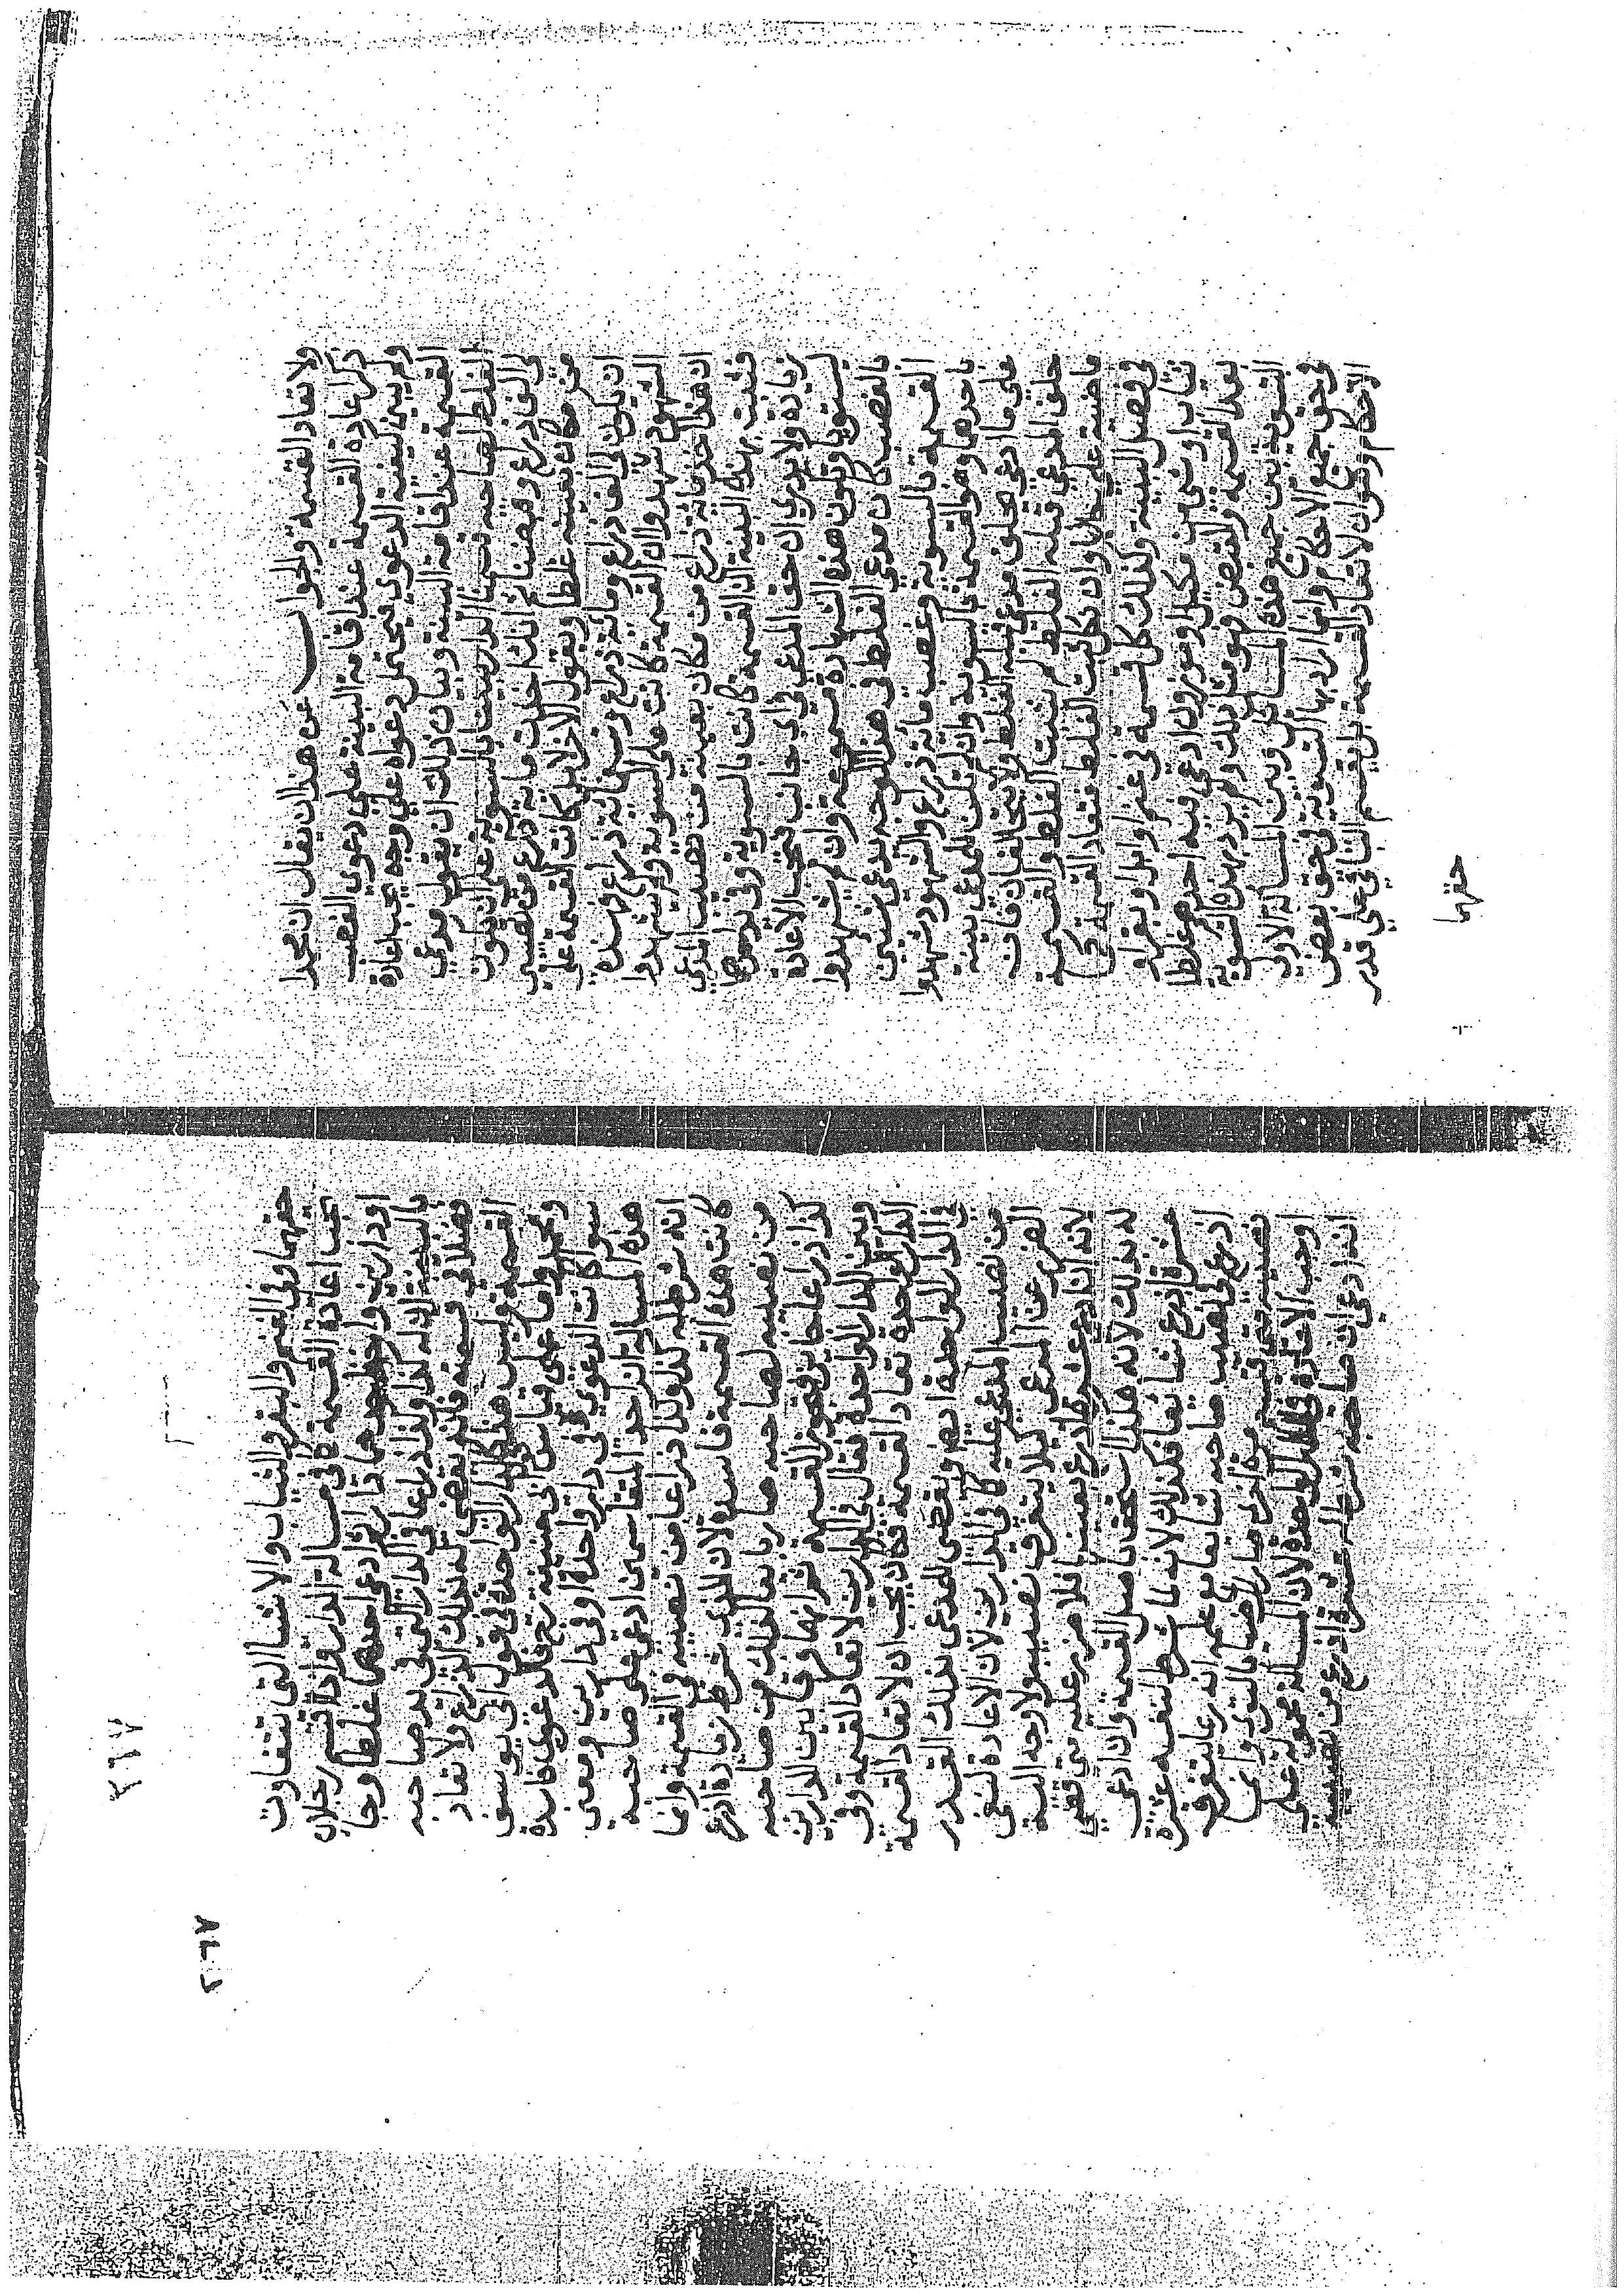 ولا تعاد القسمة والجواب عن هذا ان يقال ان محمدا
ذكر اعادة القسمة عند اقامة البينة على دعوى الغصب
ولم يبين كيفية الدعوى فيحتمل دعواه على وجه يجب اعادة
القسمة عند اقامة البينة وبيان ذلك ان يقول مدعي
الغلط لصاحبه قسمنا الدار بيننا بالسوية على ان يكون
لي الف ذراع ولك الف ذراع وقبضنا ثم انك اخذت مائة ذراع من نصيبي
من مكان بعينه غلطا ويقول الاخر لا بل كانت القسمة على
ان يكون لي الف ذراع ومائة ذراع ولك تسعمائة ذراع فشهد
الشهود شهدوا ان القسمة كانت على السوية ولم يشهدوا
ان هذا اخذ مائة ذراع من مكان بعينه من نصيب المدعي
فثبت بهذه البينة ان القسمة كانت بالسوية وفي يد احدهما
زيادة ولا يدرى ان حق المدعي في اي جانب فتجب الاعادة
ليستويا وتكون هذه الشهادة مسموعة وان لم يشهدوا
بالغصب لان مدعي الغلط في هذا الوجه يدعي شيئين
القسمة بالسوية وغصب مائة ذراع والشهود شهدوا
باحدهما وهو القسمة بالسوية وان لم تكن للمدعي بينة
على ما ادعى يحلف مدعى قبله الغلط ولا يتحالفان فان
حلف المدعى قبله الغلط لم يثبت الغلط والقسمة
ماضية على حالها وان نكل ثبت الغلط فتعاد القسمة كما
في فصل البينة وكذلك كل قسمة في غنم او ابل او بقر او
ثياب او شيء من مكيل او موزون ادعى فيه احدهم غلطا
بعد القسمة والقبض فهو مثل ذلك ولم يرد بهذه التسوية
التسوية بين جميع هذه المسائل وبين المسالة الاولى
في حق جميع الاحكام وانما اراد بها التسوية في حق بعض
الاحكام وهو ان لا تعاد القسمة بل يقسم الباقي على قدر
حقهما
٢٦٧
٢٦٧
حقهما وفي الغنم والبقر والثياب والاشياء التي تتفاوت
تجب اعادة القسمة كما في مسالة الدار واذا اقتسم رجلان
او دارين واخذ احدهما دارا ثم ادعى احدهما غلطا وجاء
بالبينة ان له كذا وكذا ذراعا في الدار التي في يد صاحبه
فضلا في قسمه فانه يقضى له بذلك الذراع ولا تعاد
القسمة وليس هذا كالدار الواحدة في قول ابي يوسف
ومحمد واما على قياس قول ابي حنيفة رح فالدعوى فاسدة
سواء كانت الدعوى في دار واحدة او في دارين ومعنى
هذه المسالة ان احد المتقاسمين ادعى على صاحبه
انه شرط له كذا وكذا ذراعا من نصيبه في القسمة وانما
كانت هذه القسمة فاسدة لان الذي شرط زيادة اذرع
من نصيبه لصاحبه صار بائعا لذلك من صاحبه
كذا ذراعا فلم تجز القسمة ثم انهما فرقا بين الدارين
وبين الدار الواحدة فقال في الدارين لا تعاد القسمة وفي
الدار الواحدة تعاد القسمة فكان يجب ان لا تعاد القسمة
في الدار الواحدة ايضا ويقضى للمدعي بذلك القدر
من نصيب المدعى عليه كما في الدارين لان الاعادة لنفي
الضرر عن المدعي كيلا يتفرق نصيبه ولا وجه اليه
لانه اذا ادعى عشرة اذرع بعينها فلا ضرر عليه متى قضي
له بذلك لانه هكذا استحق باصل القسمة وان ادعى
عشرة اذرع شائعا فكذلك لانه لما شرط لنفسه عشرة
اذرع في نصيب صاحبه شائعا مع علمه انه ربما يتفرق
نصيبه متى قسم مرة اخرى صار راضيا بالتفرق وانما
اوجب الاعادة في الدار الواحدة لان المسالة محمولة على
انه ادعى ان صاحبه شرط له عشرة اذرع من نصيبه